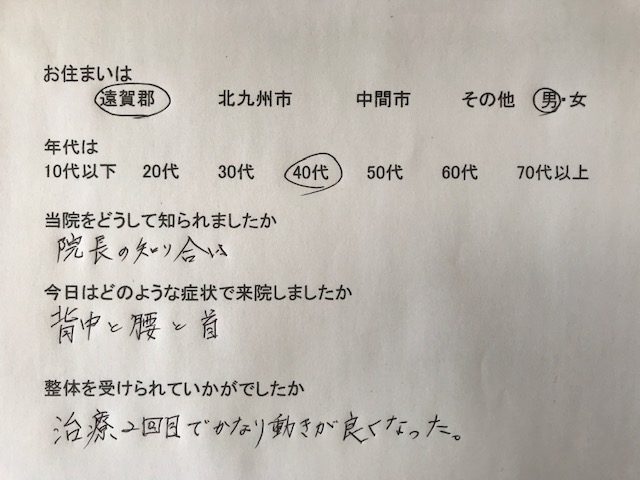 お住まいは
遠賀郡 北九州市 中間市 その他 男・女
年代は
10代以下 20代 30代 40代 50代 60代 70代以上
当院をどうして知られましたか
院長の知り合い
今日はどのような症状で来院しましたか
背中と腰と首
整体を受けられていかがでしたか
治療2回目でかなり動きが良くなった。